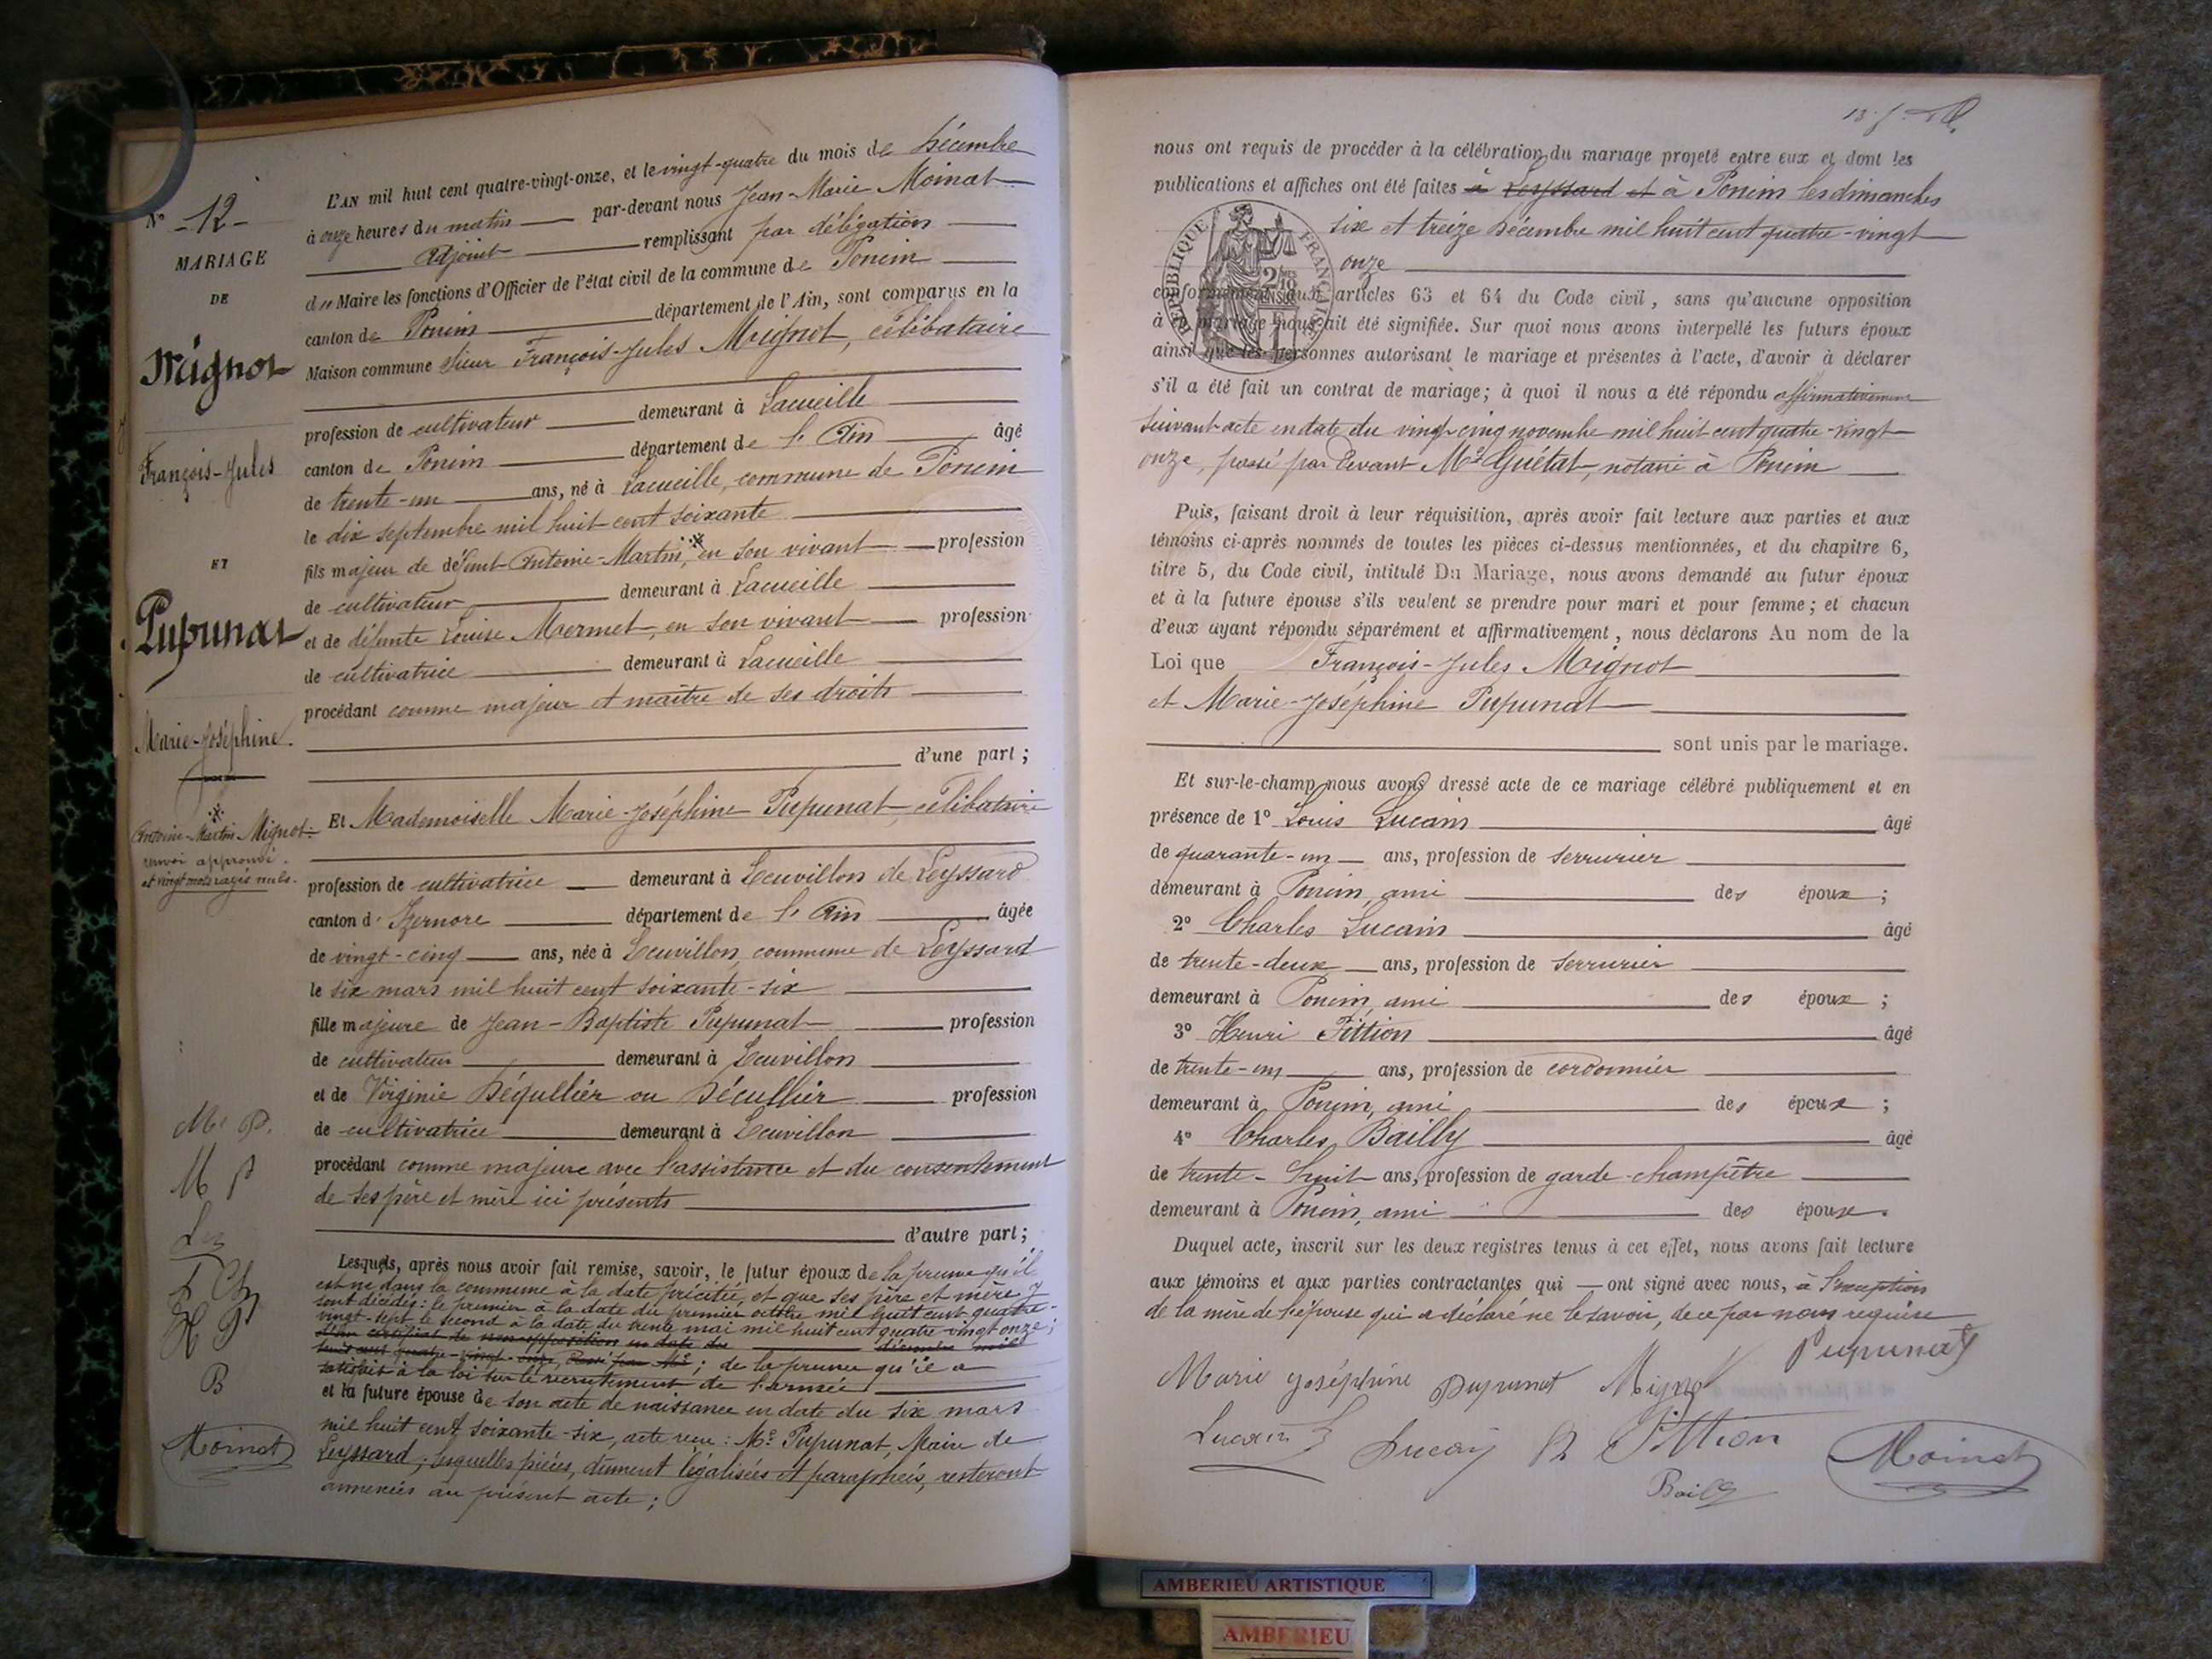 N° -12-
MARIAGE
DE
Mignot
François-Jules
ET
Pupunat
Marie-Joséphine.
Antoine-Martin Mignot.
renvoi approuvé.
et vingt mots rayés nuls.
M. P.
M P
B
Moinat
L'AN mil huit cent quatre-vingt-onze, et le vingt-quatre du mois de Décembre
à onze heures du matin par-devant nous Jean-Marie Moinat
Adjoint remplissant par délégation
du Maire les fonctions d'Officier de l'état civil de la commune de Poncin
canton de Poncin département de l'Ain, sont comparus en la
Maison commune Sieur François-Jules Mignot, célibataire
profession de cultivateur demeurant à Lacueille
canton de Poncin département de l'Ain âgé
de trente-un ans, né à Lacueille, commune de Poncin
le dix septembre mil huit cent soixante
fils majeur de défunt Antoine-Martin, en son vivant profession
de cultivateur demeurant à Lacueille
et de défunte Louise Mermet, en son vivant profession
de cultivatrice demeurant à Lacueille
procédant comme majeur et maître de ses droits
d'une part ;
Et Mademoiselle Marie-Joséphine Pupunat, célibataire
profession de cultivatrice demeurant à Leuvillon de Leyssard
canton d'Izernore département de l'Ain âgée
de vingt-cinq ans, née à Leuvillon, commune de Leyssard
le six mars mil huit cent soixante-six
fille majeure de Jean-Baptiste Pupunat profession
de cultivateur demeurant à Leuvillon
et de Virginie Dégullier ou Décullier profession
de cultivatrice demeurant à Leuvillon
procédant comme majeure avec l'assistance et du consentement
de ses père et mère ici présents
d'autre part ;
Lesquels, après nous avoir fait remise, savoir, le futur époux de la preuve qu'il
est né dans la commune à la date précitée, et que ses père et mère y
sont décédés : le premier à la date du premier octobre mil huit cent quatre-
vingt-sept, le second à la date du trente mai mil huit cent quatre vingt onze ;
d'un certificat de non-opposition en date du décembre mil
huit cent quatre-vingt-onze, Passé par Me ; de la preuve qu'il a
satisfait à la loi sur le recrutement de l'armée
et la future épouse de son acte de naissance en date du six mars
mil huit cent soixante-six, acte reçu : Me Pupunat, Maire de
Leyssard ; lesquelles pièces, dûment légalisées et paraphées, resteront
annexées au présent acte ;
nous ont requis de procéder à la célébration du mariage projeté entre eux et dont les
publications et affiches ont été faites à Leyssard et à Poncin les dimanches
six et treize Décembre mil huit cent quatre-vingt
onze
RÉPUBLIQUE FRANÇAISE
conformément aux articles 63 et 64 du Code civil, sans qu'aucune opposition
à ce mariage nous ait été signifiée. Sur quoi nous avons interpellé les futurs époux
ainsi que les personnes autorisant le mariage et présentes à l'acte, d'avoir à déclarer
s'il a été fait un contrat de mariage; à quoi il nous a été répondu affirmativement
suivant acte en date du vingt-cinq novembre mil huit cent quatre-vingt
onze, passé par devant Me Guétat, notaire à Poncin
Puis, faisant droit à leur réquisition, après avoir fait lecture aux parties et aux
témoins ci-après nommés de toutes les pièces ci-dessus mentionnées, et du chapitre 6,
titre 5, du Code civil, intitulé Du Mariage, nous avons demandé au futur époux
et à la future épouse s'ils veulent se prendre pour mari et pour femme; et chacun
d'eux ayant répondu séparément et affirmativement, nous déclarons Au nom de la
Loi que François-Jules Mignot
et Marie-Joséphine Pupunat
sont unis par le mariage.
Et sur-le-champ nous avons dressé acte de ce mariage célébré publiquement et en
présence de 1° Louis Lucain âgé
de quarante-un ans, profession de serrurier
demeurant à Poncin, ami des époux ;
2° Charles Lucain âgé
de trente-deux ans, profession de serrurier
demeurant à Poncin, ami des époux ;
3° Henri Pittion âgé
de trente-un ans, profession de cordonnier
demeurant à Poncin, ami des époux ;
4° Charles Bailly âgé
de trente-huit ans, profession de garde-champêtre
demeurant à Poncin, ami des époux.
Duquel acte, inscrit sur les deux registres tenus à cet effet, nous avons fait lecture
aux témoins et aux parties contractantes qui ont signé avec nous, à l'exception
de la mère de l'épouse qui a déclaré ne le savoir, de ce par nous requise
Pupunat
Marie Joséphine Pupunat Mignot
Lucain L Lucain H Pittion Moinat
Bailly
AMBERIEU ARTISTIQUE
AMBERIEU